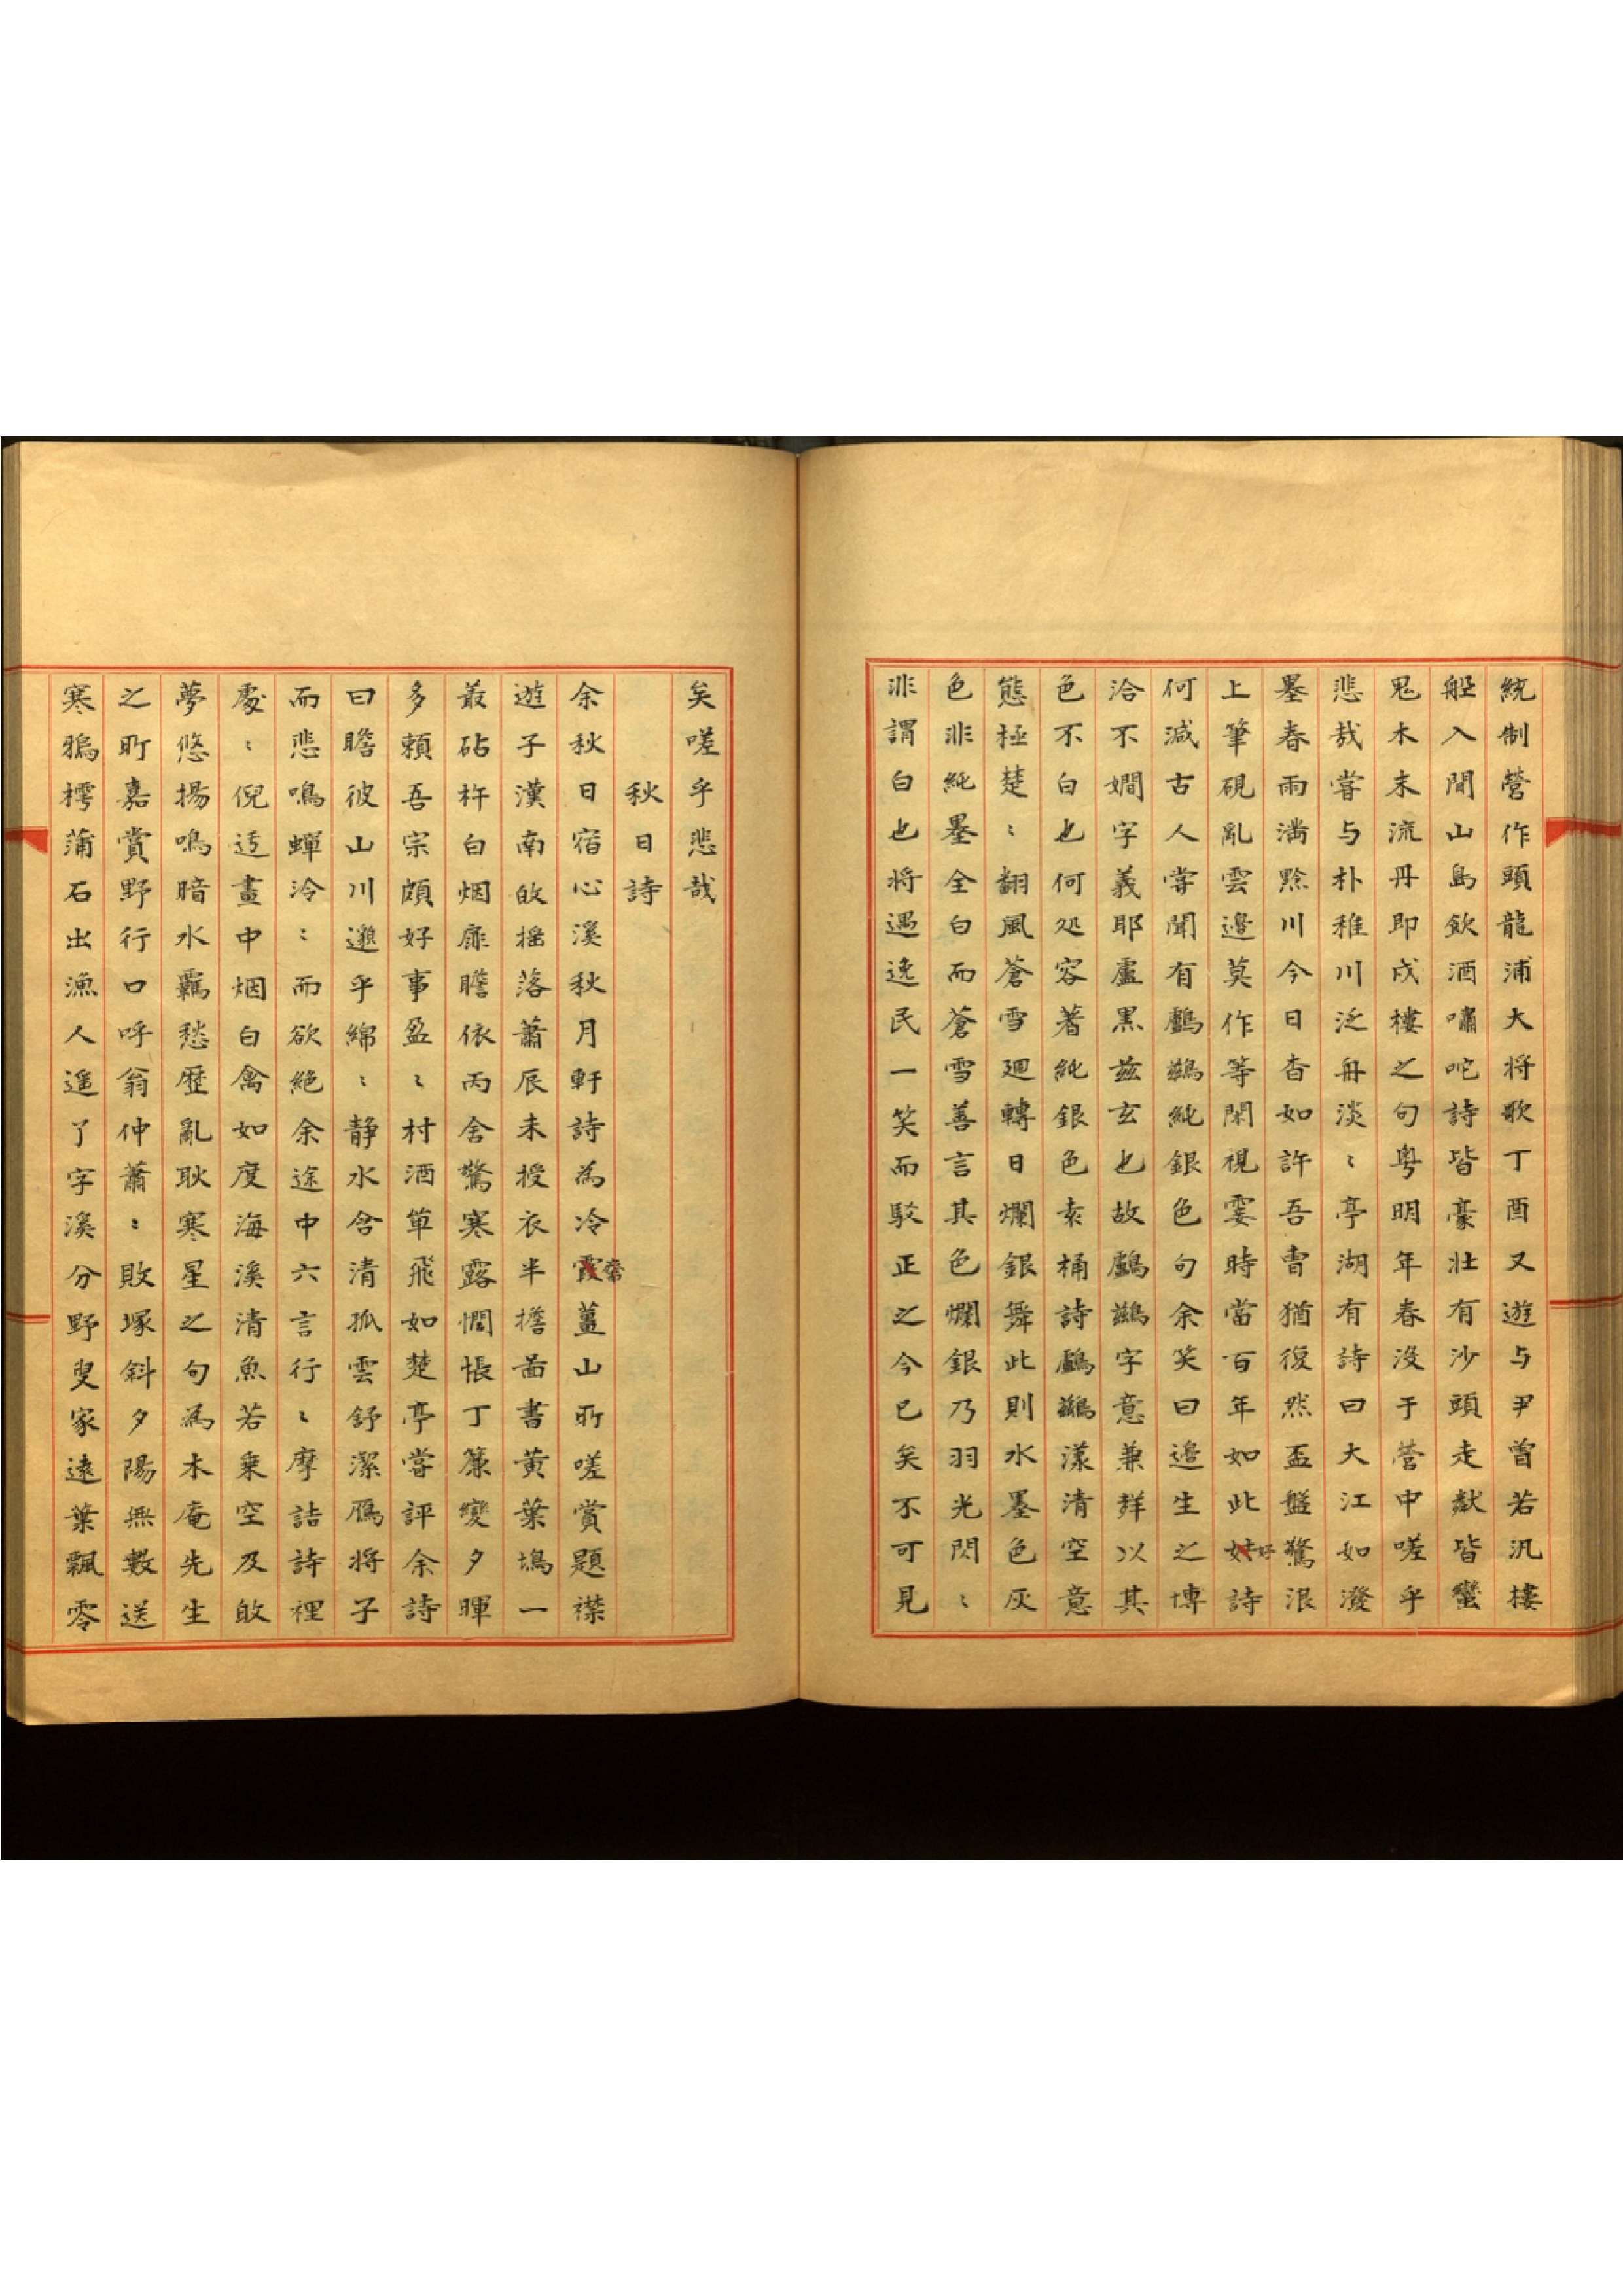 統制營作頭龍浦大将歌丁酉又遊与尹曾若汎樓
船入閒山島飲酒嘯咤詩皆豪壯有沙頭走猷皆蠻
鬼木末流丹即戍樓之句粤明年春沒于營中嗟乎
悲哉甞与朴稚川泛舟淡〻亭湖有詩曰大江如潑
墨春雨満黟川今日杳如許吾曺猶復然盃盤驚浪
上筆硯亂雲邊莫作等閑視霎時當百年如此好詩
何减古人甞聞有鸕鶿純銀色句余笑曰邉生之博
洽不嫺字義耶盧黒兹玄也故鸕鶿字意兼群以其
色不白也何処容著純銀色柰桶詩鸕鶿漾清空意
態極楚〻翻風蒼雪廻轉日爛銀舞此則水墨色灰
色非純墨全白而蒼雪善言其色爛銀乃羽光閃〻
非謂白也将遇逸民一笑而駁正之今已矣不可見
矣嗟乎悲哉
秋日詩
余秋日宿心溪秋月軒詩為冷齋薑山所嗟賞題襟
遊子漢南皈揺落蕭辰未授衣半擔啚書黄葉塢一
叢砧杵白烟扉瞻依丙舍驚寒露惆悵丁簾變夕暉
多頼吾宗頗好事盈〻村酒箪飛如楚亭甞評余詩
曰瞻彼山川邈乎綿〻静水含清孤雲舒潔鴈将子
而悲鳴蟬泠〻而欲絶余途中六言行〻摩詰詩裡
處〻倪迂畫中烟白禽如度海溪清魚若乗空及皈
夢悠揚鳴暗水羈愁歴亂耿寒星之句為木庵先生
之所嘉賞野行口呼翁仲蕭〻敗塚斜夕陽無數送
寒鴉樗蒲石出漁人遥了字溪分野叟家遠葉飄零